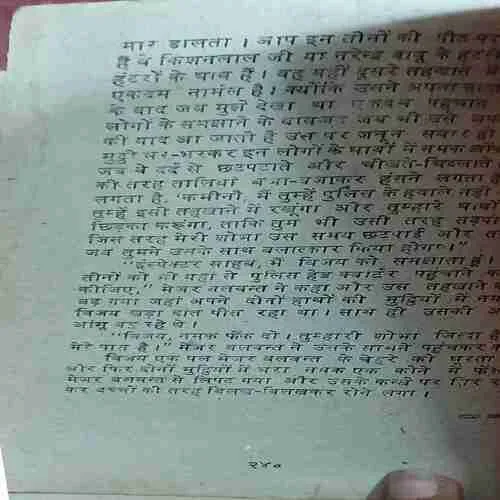 मार डालता । आप इन तीनों की पीठ पर
है वे किशनलाल जी या नरेन्द्र बाबू के हटा
हंटरों के घाव हैं । वह यहीं दूसरे तहखाने
एकदम नार्मल है । क्योंकि उसने अपना
के बाद जब मुझे देखा था एकदम पहचान
लोगों के समझाने के बावजूद जब भी उसे
की याद आ जाती है उस पर जनून सवार हो
मुट्ठी भर-भरकर इन लोगों के घावों में नमक
जब ये दर्द से छटपटाते और चीखते-चिल्लाते
की तरह तालियां बजा-बजाकर हंसने लगता
लगता है, 'कमीनो, मैं तुम्हें पुलिस के हवाले नहीं
तुम्हें इसी तहखाने में रखूंगा और तुम्हारे घावों
छिड़का करूंगा, ताकि तुम भी उसी तरह तड़प
जिस तरह मेरी शोभा उस समय छटपटाई और
जब तुमने उसके साथ बलात्कार किया होगा ।"
"इन्स्पेक्टर साहब, मैं विजय को समझाता हूं ।
तीनों को को यहां से पुलिस हैड क्वार्टर पहुंचाने
कीजिए," मेजर बलवन्त ने कहा और उस तहखाने
बढ़ गया जहां अपने दोनों हाथों की मुट्ठियों में नमक
विजय खड़ा दांत पीस रहा था । साथ ही उसकी
आंसू बह रहे थे ।
"विजय, नमक फेंक दो । तुम्हारी शोभा जिन्दा
मेरे पास है ।" मेजर बलवन्त ने उसके सामने पहुंचकर
विजय एक पल मेजर बलवन्त के चेहरे को घूरता
और फिर दोनों मुट्ठियों में भरा नमक एक कोने में
मेजर बलवन्त से लिपट गया और उसके कन्धे पर सिर
कर बच्चों की तरह बिलख-बिलखकर रोने लगा ।
२४०